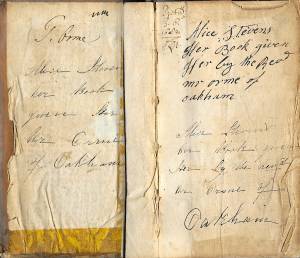 T. Orme
Alice Steven
her Book
given her
Mr Orme
of Oakham
Alice Stevens
Her Book given
Her by the Revd
mr orme of
oakham
Alice Steven
her Book given
her by the Revd
Mr Orme of
Oakham